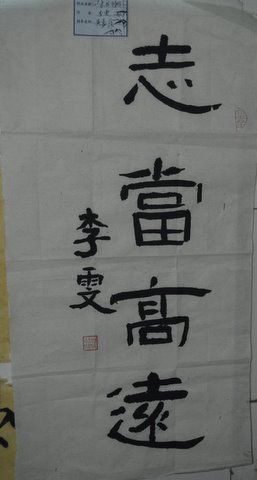 志當高遠
李雯